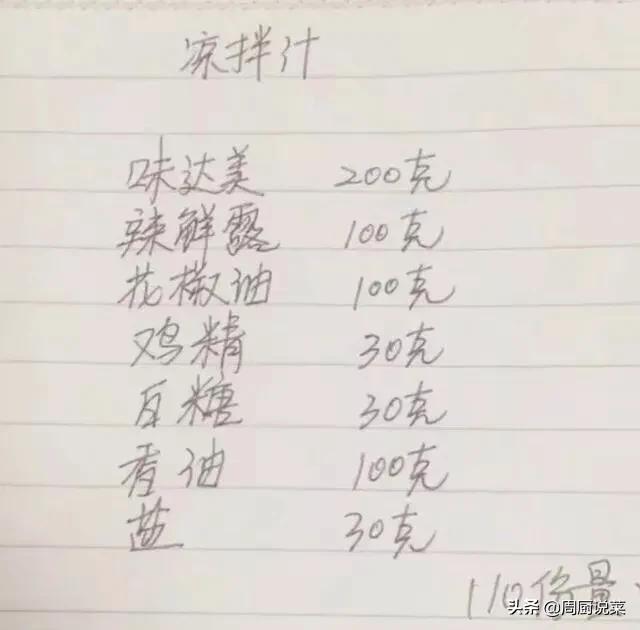 凉拌汁
味达美 200克
辣鲜露 100克
花椒油 100克
鸡精 30克
白糖 30克
香油 100克
盐 30克
110份量
头条 @周厨说菜